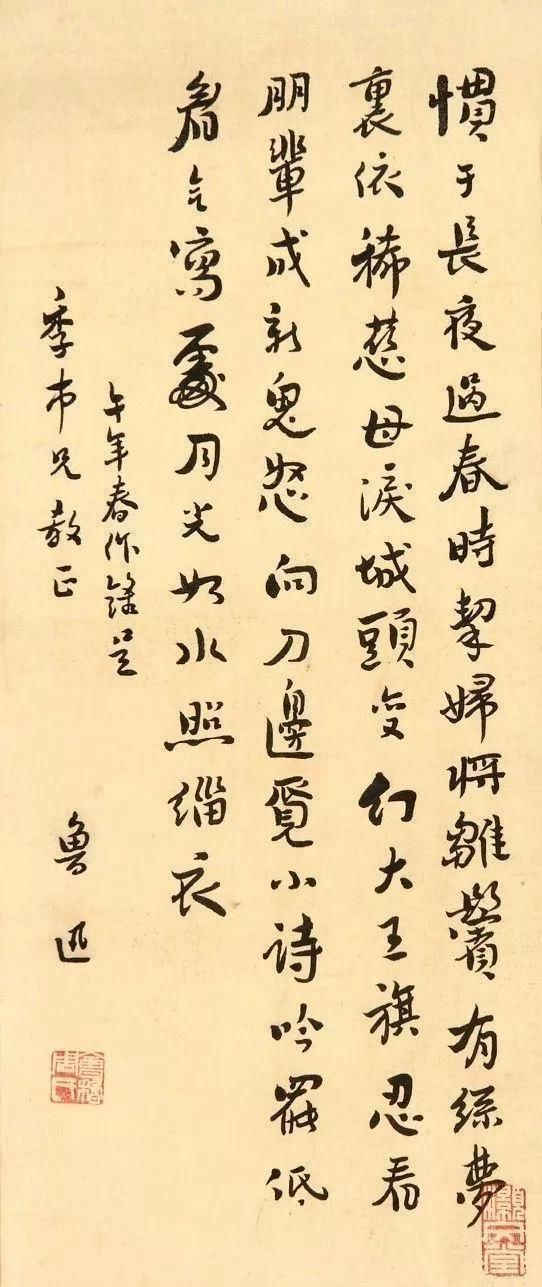 慣于長夜過春時挈婦將雛鬢有絲夢
裏依稀慈母淚城頭變幻大王旗忍看
朋輩成新鬼怒向刀邊覓小詩吟罷低
眉無寫處月光如水照緇衣
午年春作錄呈
季巿兄教正
魯迅